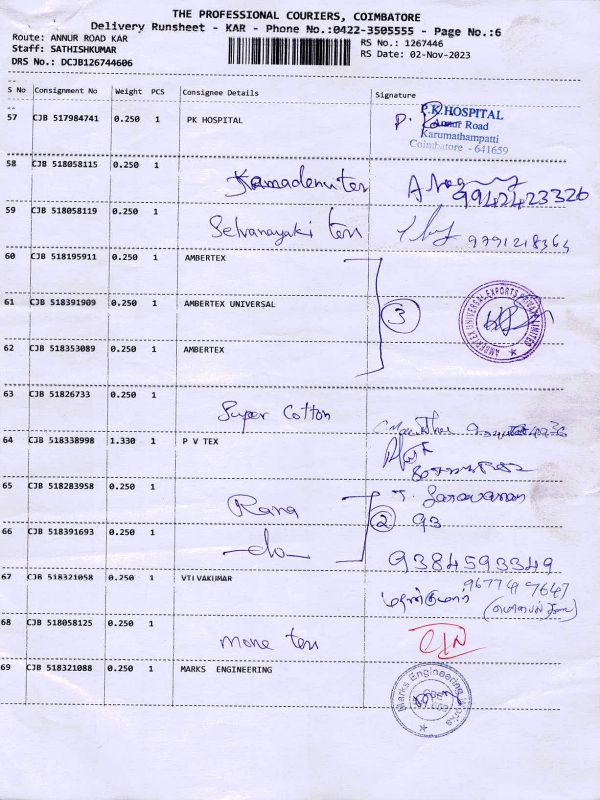 THE PROFESSIONAL COURIERS, COIMBATORE
Delivery Runsheet - KAR - Phone No.:0422-3505555 - Page No.:6
Route: ANNUR ROAD KAR
Staff: SATHISHKUMAR
DRS No.: DCJB126744606
RS No.: 1267446
RS Date: 02-Nov-2023
S No Consignment No Weight PCS Consignee Details Signature
57 CJB 517984741 0.250 1 PK HOSPITAL
P.K.HOSPITAL
Annur Road
Karumathampatti
Coimbatore - 641659
58 CJB 518058115 0.250 1 Kamadenu tex
9942423326
59 CJB 518058119 0.250 1 Selvanayaki tex 9791218364
60 CJB 518195911 0.250 1 AMBERTEX
61 CJB 518391909 0.250 1 AMBERTEX UNIVERSAL 3
AMBERTEX UNIVERSAL EXPORTS PRIVATE LIMITED
62 CJB 518353089 0.250 1 AMBERTEX
63 CJB 51826733 0.250 1 Super Cotton
64 CJB 518338998 1.330 1 P V TEX
65 CJB 518283958 0.250 1 Rana T. Saravanan
2 93
66 CJB 518391693 0.250 1 -do- 9384593349
67 CJB 518321058 0.250 1 VTIVAKUMAR 9677497647
68 CJB 518058125 0.250 1 mone tex
69 CJB 518321088 0.250 1 MARKS ENGINEERING
Marks Engineering Works